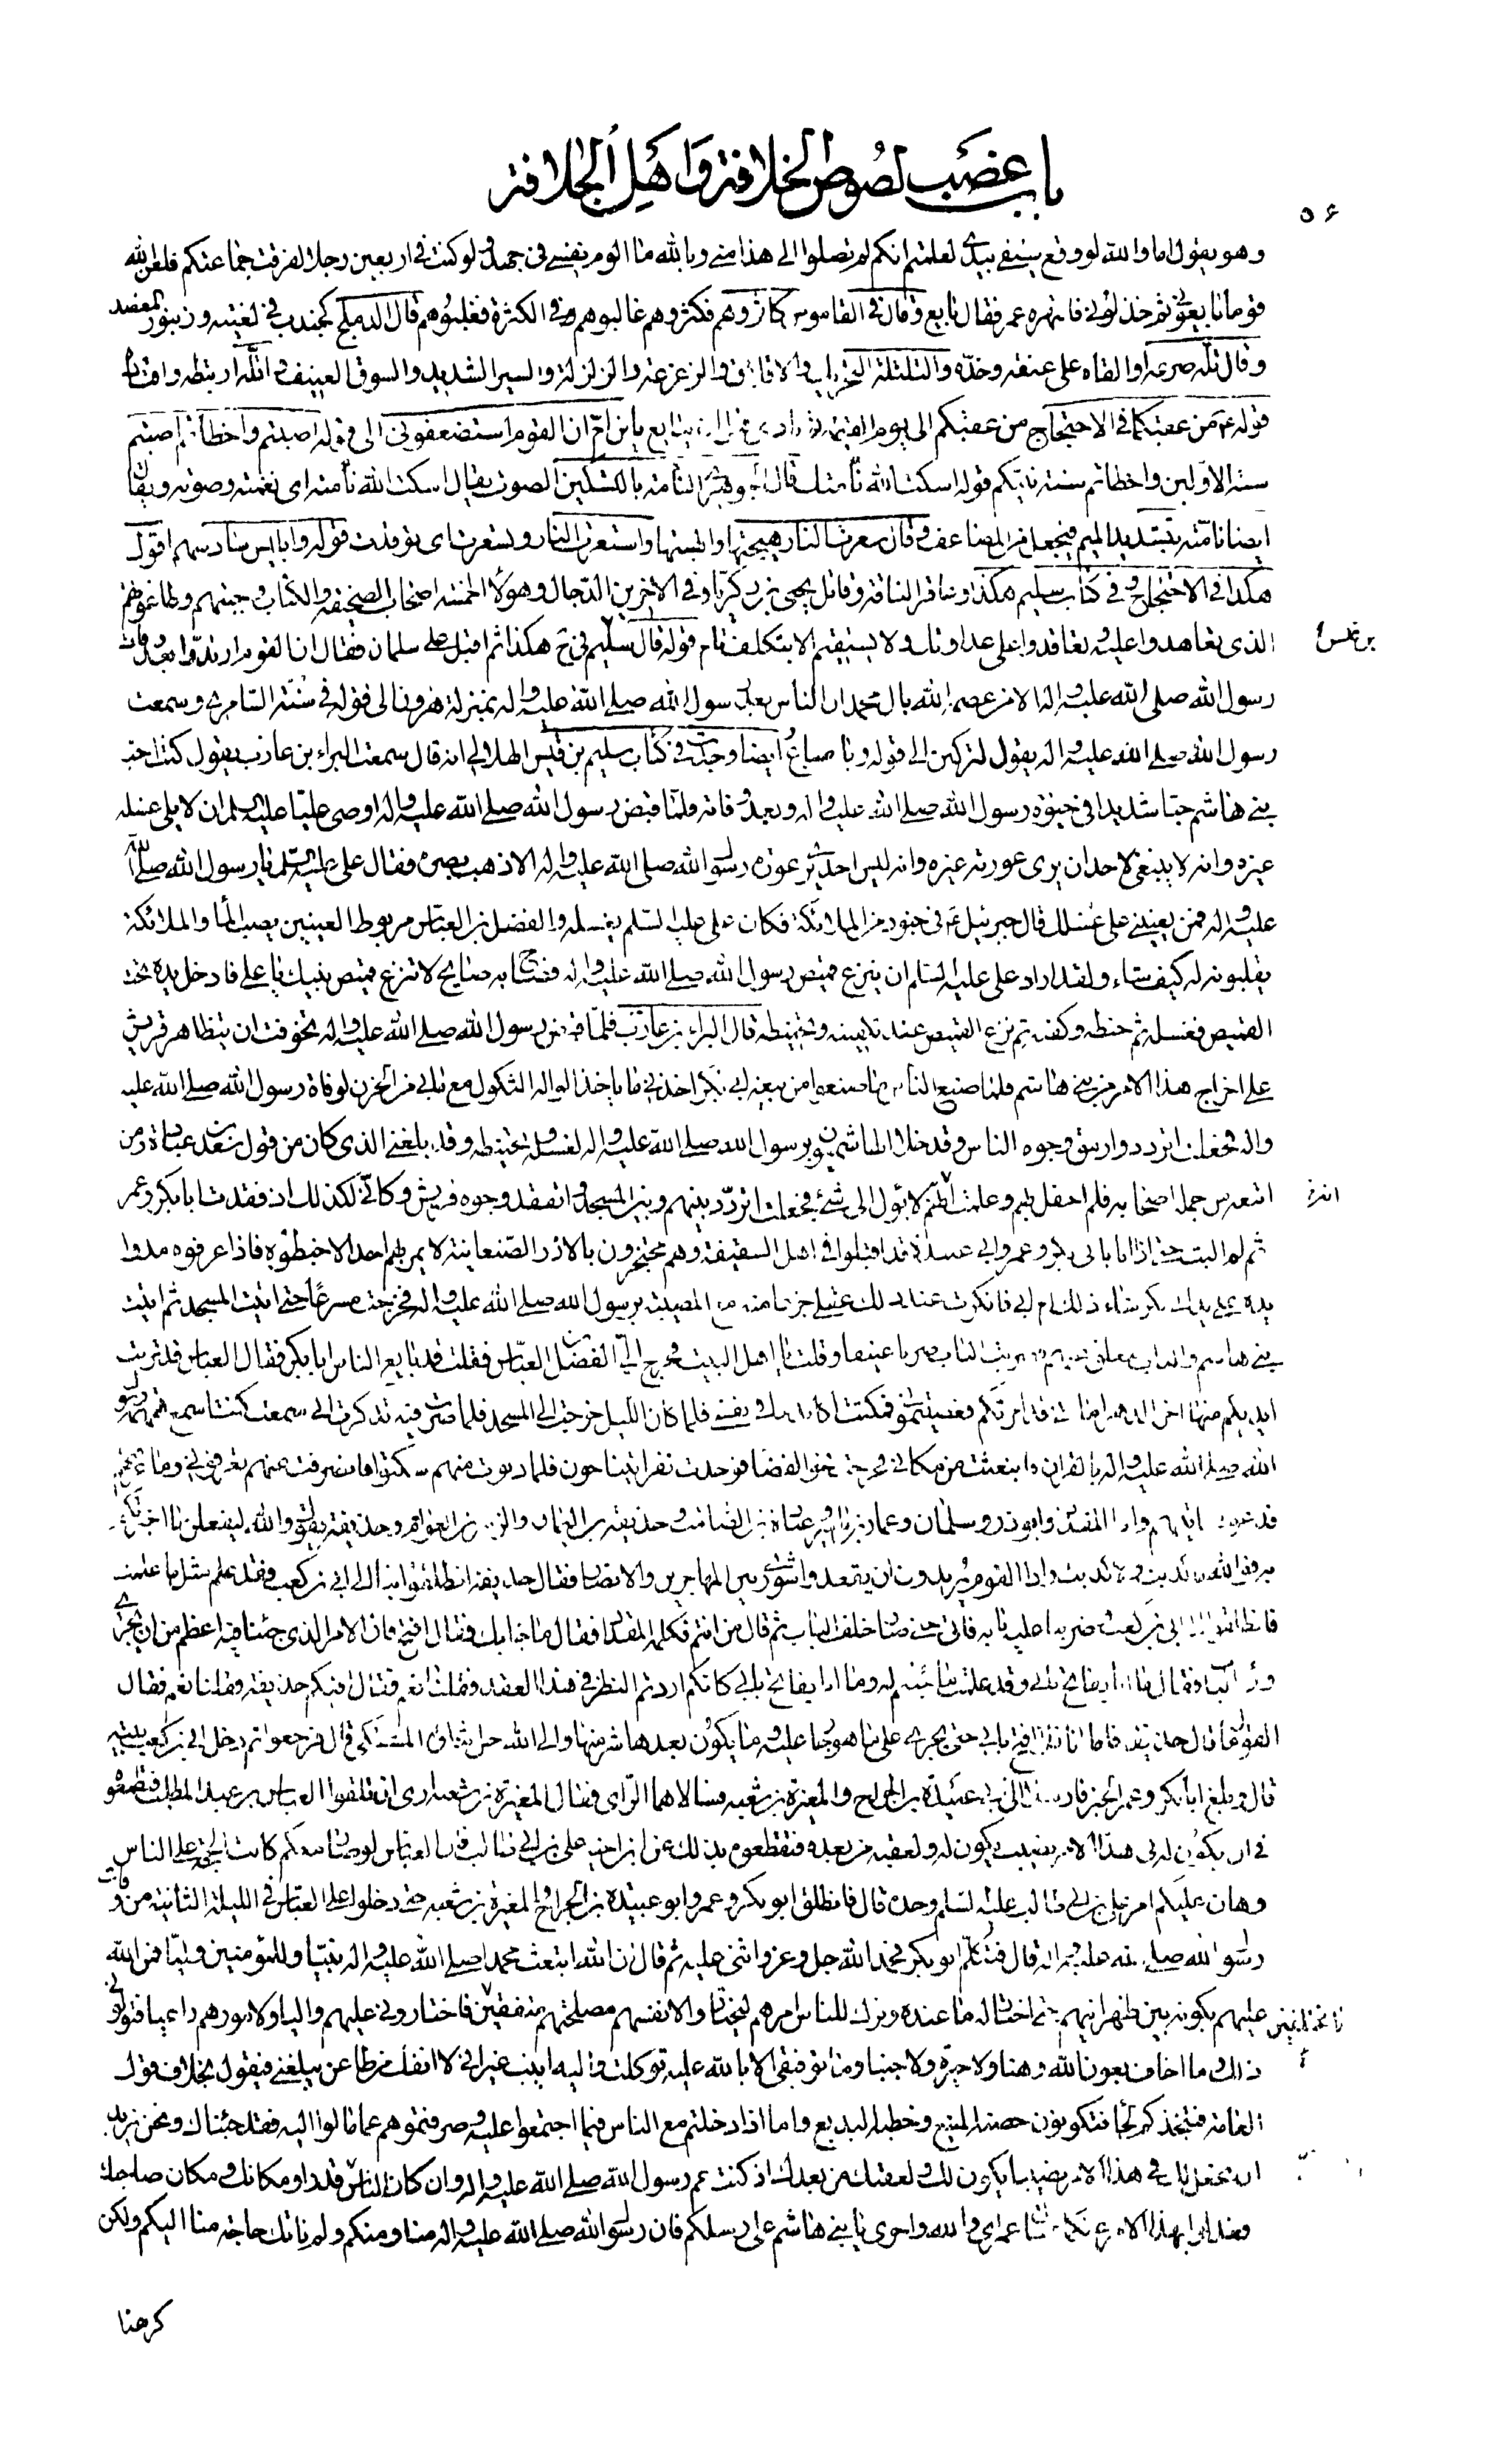 باب غصب لصوص الخلافة واهل الجلافة
٥٦
وهو يقول اما والله لو وقع سيفي بيدي لعلمتم انكم لم تصلوا الى هذا مني وبالله ما الوم نفسي في جهد ولو كنت في اربعين رجلا لفرقت جماعتكم فلعن الله
قوما بايعوني ثم خذلوني فانتهره عمر فقال بايع وقال في القاموس كاثروهم فكثروهم غالبوهم في الكثرة فغلبوهم قال الدملج كجندب في لغتيه وزنبور المعضد
وقال تله صرعه او القاه على عنقه وخده والتلتلة التحريك والاقلاق والزعزعة والزلزلة والسير الشديد والسوق العنيف واتله ارتبطه واقتاده
قوله من عقبكما في الاحتجاج من عقبكم الى يوم القيمة ثم نادى قبل ان يبايع يابن ام ان القوم استضعفوني الى قوله اصبتم واخطأتم اصبتم
سنة الاولين واخطاتم سنة نبيكم قوله اسكت الله نأمتك قال الجوهري النأمة بالتسكين الصوت يقال اسكت الله نأمته اى نغمته وصوته ويقال
ايضا نامته بتشديد الميم فيجعل من المضاعف وقال سعرت النار هيجتها والهبتها واستعرت النار وتسعرت اى توقدت قوله واما بليس سادسهم اقول
هكذا في الاحتجاج وفي كتاب سليم هكذا وعاقر الناقة وقاتل يحيى بن زكريا وفي الاخرين الدجال وهؤلاء الخمسة اصحاب الصحيفة والكتاب وجبتهم وطاغوتهم
الذى تعاهدوا عليه وتعاقدوا على عداوتك ولا يستقيم الا بتكلف تام قوله قال سليم في ج هكذا ثم اقبل على سلمان فقال ان القوم ارتدوا بعد وفات
رسول الله صلى الله عليه واله الا من عصمه الله بال محمد ان الناس بعد رسول الله صلى الله عليه واله بمنزلة هرون الى قوله في سنة السامرى وسمعت
رسول الله صلى الله عليه واله يقول لتركبن الى قوله وباعا بباع ايضا وجدت في كتاب سليم بن قيس الهلالي انه قال سمعت البراء بن عازب يقول كنت احب
بني هاشم حبا شديدا في حيوة رسول الله صلى الله عليه واله وبعد وفاته فلما قبض رسول الله صلى الله عليه واله اوصى عليا عليه السلم ان لا يلي غسله
غيره وانه لا ينبغي لاحد ان يرى عورته غيره وانه ليس احد يرى عورة رسول الله صلى الله عليه واله الا ذهب بصره فقال على عليه السلم يا رسول الله صلى الله
عليه واله فمن يعينني على غسلك قال جبرئيل في جنود من الملائكة فكان على عليه السلم يغسله والفضل بن العباس مربوط العينين يصب الماء والملائكة
يقلبونه له كيف شاء ولقد اراد على عليه السلم ان ينزع قميص رسول الله صلى الله عليه واله فصاح به صايح لا تنزع قميص نبيك يا على فادخل يده تحت
القميص فغسله ثم حنطه وكفنه ثم نزع القميص عند تكفينه وتحنيطه قال البراء بن عازب فلما قبض رسول الله صلى الله عليه واله تخوفت ان يتظاهر قريش
على اخراج هذا الامر من بني هاشم فلما صنع الناس ما صنعوا من بيعة ابي بكر اخذني ما ياخذ الواله الثكول مع ما بي من الحزن لوفاة رسول الله صلى الله عليه
واله فجعلت اتردد وارمق وجوه الناس وقد خلا الهاشميون برسول الله صلى الله عليه واله لغسله وتحنيطه وقد بلغني الذى كان من قول سعد بن عبادة ومن
اتبعه من جملة اصحابه فلم احفل بهم وعلمت انه لا يؤل الى شئ فجعلت اتردد بينهم وبين المسجد واتفقد وجوه قريش وكاني لكذلك اذ فقدت ابا بكر وعمر
ثم لم البث حتى اذا انا بابي بكر وعمر وابي عبيدة قد اقبلوا في اهل السقيفة وهم محتجزون بالازر الصنعانية لا يمر بهم احد الا خبطوه فاذا عرفوه مدوا
يده على يد ابي بكر شاء ذلك ام ابى فانكرت عند ذلك عقلي جزعا منه مع المصيبة برسول الله صلى الله عليه واله فخرجت مسرعا حتى اتيت المسجد ثم اتيت
بني هاشم والباب مغلق دونهم فضربت الباب ضربا عنيفا وقلت يا اهل البيت فخرج الي الفضل بن العباس فقلت قد بايع الناس ابا بكر فقال العباس قد تربت
ايديكم منها اخر الدهر اما اني قد امرتكم فعصيتموني فمكثت اكابد ما في نفسي فلما كان الليل خرجت الى المسجد فلما صرت فيه تذكرت اني سمعت كنت اسمع همهمة رسول
الله صلى الله عليه واله بالقران فانبعثت من مكاني فخرجت نحو الفضا فوجدت نفرا يتناجون فلما دنوت منهم سكتوا فانصرفت عنهم فعرفوني وما
المقداد وابوذر وسلمان وعمار بن ياسر وعبادة بن الصامت وحذيفة بن اليمان والزبير بن العوام وحذيفة يقول والله ليفعلن ما اخبرتكم
به فوالله ما كذبت ولا كذبت واذا القوم يريدون ان يعيدوا شورى بين المهاجرين والانصار فقال حذيفة انطلقوا بنا الى ابي بن كعب فقد علم مثل ما علمت
فانطلقنا الى ابي بن كعب فضربنا عليه بابه فاتى حتى صار خلف الباب ثم قال من انتم فكلمه المقداد فقال ما جاء بك فقال افتح فان الامر الذى جئنا فيه اعظم من ان يجرى
وراء الباب فقال ما انا بفاتح بابي وقد علمت ما جئتم له وما انا بفاتح بابي كانكم اردتم النظر في هذا العقد فقلنا نعم فقال افيكم حذيفة فقلنا نعم فقال
القول ما قال حذيفة فاما انا فلا افتح بابي حتى يجرى على ما هو جار عليه وما يكون بعدها شر منها والى الله جل ثناؤه المشتكى قال فرجعوا ثم دخل ابي بن كعب بيته
قال وبلغ ابا بكر وعمر الخبر فارسلا الى ابي عبيدة بن الجراح والمغيرة بن شعبة فسالاهما الراى فقال المغيرة بن شعبة ارى ان تلقوا العباس بن عبد المطلب فتطمعوه
في ان يكون له في هذا الامر نصيب يكون له ولعقبه من بعده فتقطعوه بذلك عن ابن اخيه على بن ابي طالب فان العباس لو صار معكم كانت الحجة على الناس
وهان عليكم امر على بن ابي طالب عليه السلم وحده قال فانطلق ابو بكر وعمر وابو عبيدة بن الجراح والمغيرة بن شعبة حتى دخلوا على العباس في الليلة الثانية من وفات
رسول الله صلى الله عليه واله قال فتكلم ابو بكر فحمد الله جل وعز واثنى عليه ثم قال ان الله ابتعث محمدا صلى الله عليه واله نبيا وللمؤمنين وليا فمن الله
عليهم بكونه بين ظهرانيهم حتى اختار له ما عنده وترك للناس امرهم ليختاروا لانفسهم مصلحتهم متفقين فاختاروني عليهم واليا ولامورهم راعيا فتوليت
ذلك وما اخاف بعون الله وهنا ولا حيرة ولا جبنا وما توفيقى الا بالله عليه توكلت واليه انيب غير اني لا انفك من طاعن يبلغني فيقول بخلاف قول
العامة فيتخذكم لجأ فتكونون حصنه المنيع وخطبه البديع واما اذا دخلتم مع الناس فيما اجتمعوا عليه او صرفتموهم عما مالوا اليه فقد جئناك ونحن نريد
ان نجعل لك في هذا الامر نصيبا يكون لك ولعقبك من بعدك اذ كنت عم رسول الله صلى الله عليه واله وان كان الناس قد راوا مكانك ومكان صاحبك
فعدلوا بهذا الامر عنكما فقال عمر اى والله واخرى يا بني هاشم على رسلكم فان رسول الله صلى الله عليه واله منا ومنكم ولم ناتك حاجة منا اليكم ولكن
كرهنا